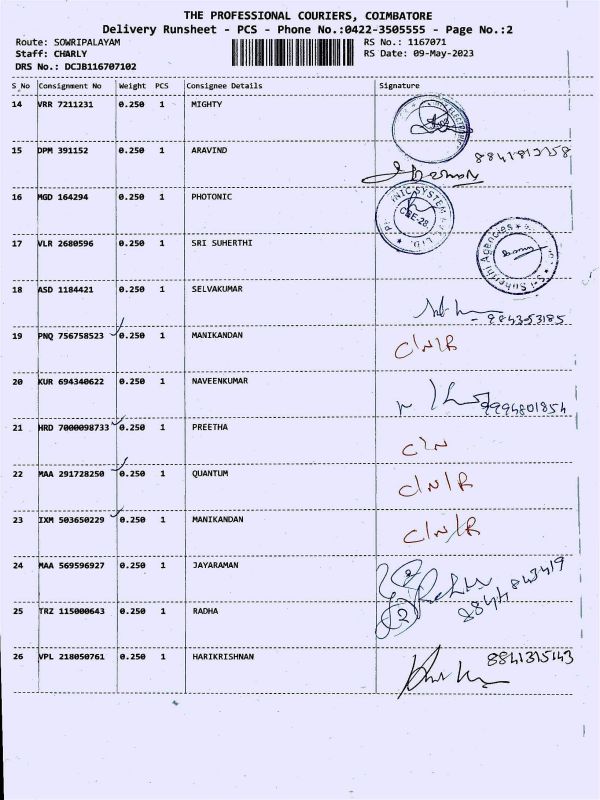 THE PROFESSIONAL COURIERS, COIMBATORE
Delivery Runsheet - PCS - Phone No.:0422-3505555 - Page No.:2
Route: SOWRIPALAYAM RS No.: 1167071
Staff: CHARLY RS Date: 09-May-2023
DRS No.: DCJB116707102
S_No Consignment No Weight PCS Consignee Details Signature
14 VRR 7211231 0.250 1 MIGHTY
15 DPM 391152 0.250 1 ARAVIND
16 MGD 164294 0.250 1 PHOTONIC
CBE-28
17 VLR 2680596 0.250 1 SRI SUHERTHI
18 ASD 1184421 0.250 1 SELVAKUMAR
19 PNQ 756758523 0.250 1 MANIKANDAN C/N/R
20 KUR 694340622 0.250 1 NAVEENKUMAR 9994801854
21 HRD 7000098733 0.250 1 PREETHA C/N
22 MAA 291728250 0.250 1 QUANTUM C/N/R
23 IXM 503650229 0.250 1 MANIKANDAN C/N/R
24 MAA 569596927 0.250 1 JAYARAMAN
25 TRZ 115000643 0.250 1 RADHA
26 VPL 218050761 0.250 1 HARIKRISHNAN